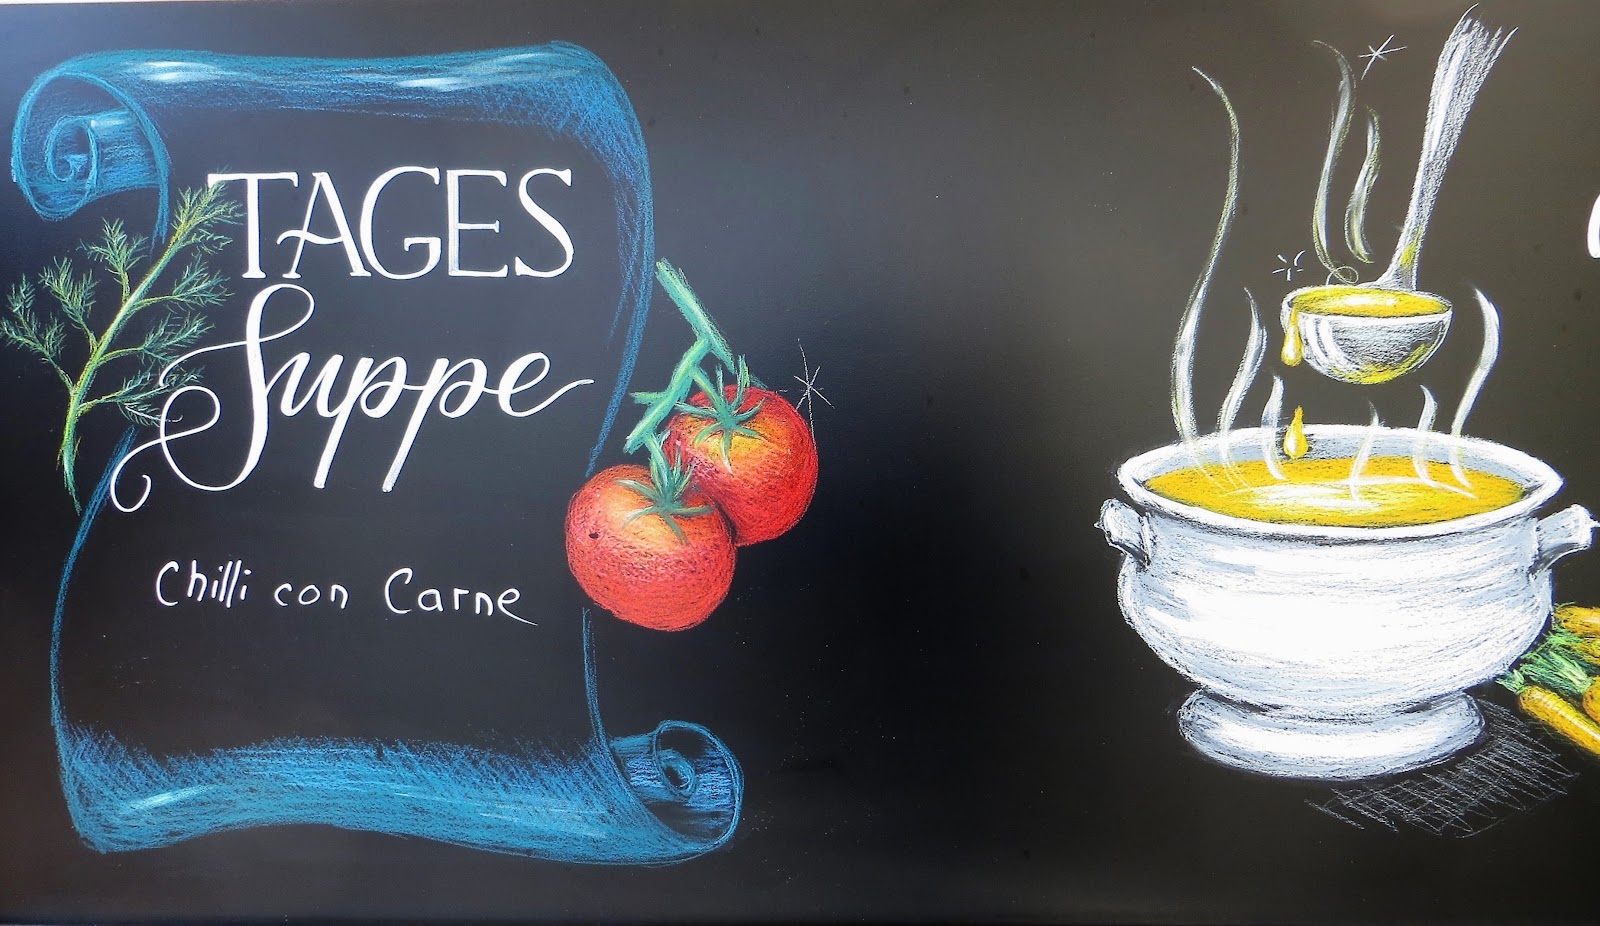 TAGES
Suppe
Chilli con Carne